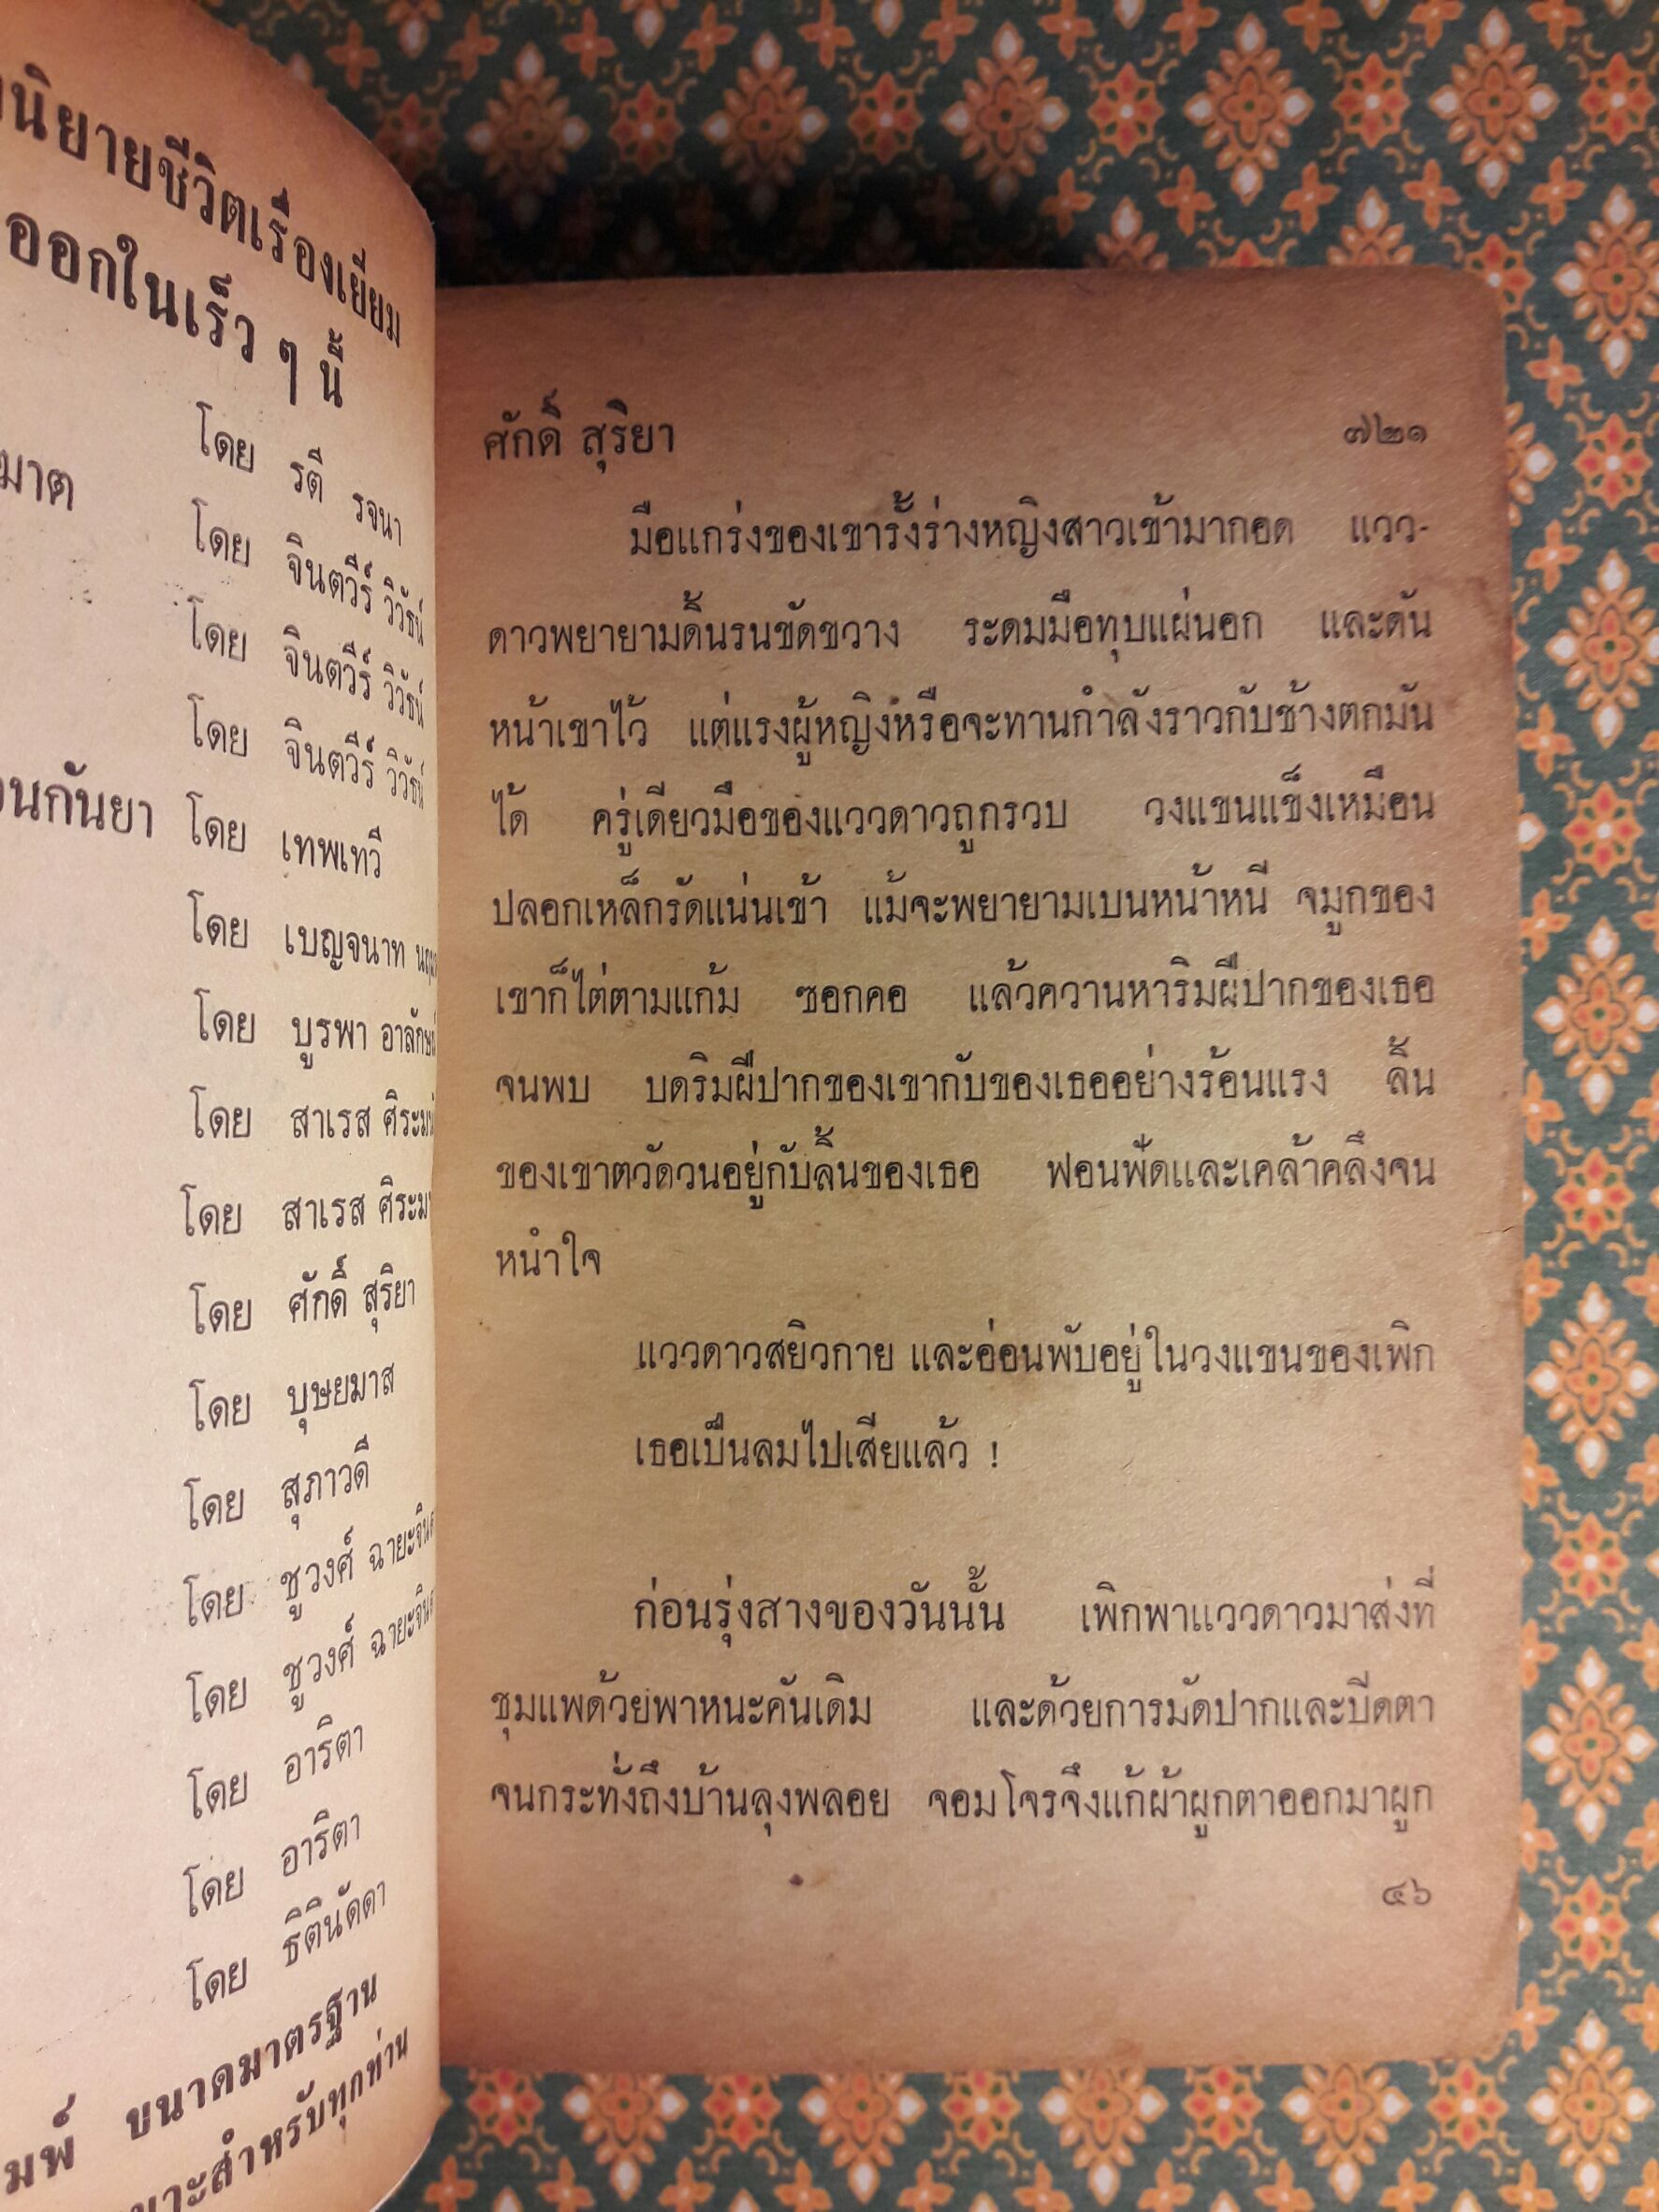 นิยายชีวิตเรื่องเยี่ยม
ออกในเร็ว ๆ นี้
โดย รตี รจนา
มาต
โดย จินตวีร์ วิวัธน์
โดย จินตวีร์ วิวัธน์
โดย จินตวีร์ วิวัธน์
นกันยา โดย เทพเทวี
โดย เบญจนาท
โดย บูรพา
โดย สาเรส
โดย สาเรส
โดย ศักดิ์ สุริยา
โดย บุษยมาส
โดย สุภาวดี
โดย ชูวงศ์
โดย ชูวงศ์
โดย อาริตา
โดย อาริตา
โดย ธิตินัดดา
มพ์ ขนาดมาตรฐาน
สำหรับทุกท่าน
ศักดิ์ สุริยา ๗๒๑
มือแกร่งของเขารั้งร่างหญิงสาวเข้ามากอด แวว-
ดาวพยายามดิ้นรนขัดขวาง ระดมมือทุบแผ่นอก และดัน
หน้าเขาไว้ แต่แรงผู้หญิงหรือจะทานกำลังราวกับช้างตกมัน
ได้ ครู่เดียวมือของแววดาวถูกรวบ วงแขนแข็งเหมือน
ปลอกเหล็กรัดแน่นเข้า แม้จะพยายามเบนหน้าหนี จมูกของ
เขาก็ไต่ตามแก้ม ซอกคอ แล้วควานหาริมฝีปากของเธอ
จนพบ บดริมฝีปากของเขากับของเธออย่างร้อนแรง ลิ้น
ของเขาตวัดวนอยู่กับลิ้นของเธอ ฟอนฟัดและเคล้าคลึงจน
หนำใจ
แววดาวสยิวกาย และอ่อนพับอยู่ในวงแขนของเพิก
เธอเป็นลมไปเสียแล้ว !
ก่อนรุ่งสางของวันนั้น เพิกพาแววดาวมาส่งที่
ชุมแพด้วยพาหนะคันเดิม และด้วยการมัดปากและปีดตา
จนกระทั่งถึงบ้านลุงพลอย จอมโจรจึงแก้ผ้าผูกตาออกมาผูก
๔๖